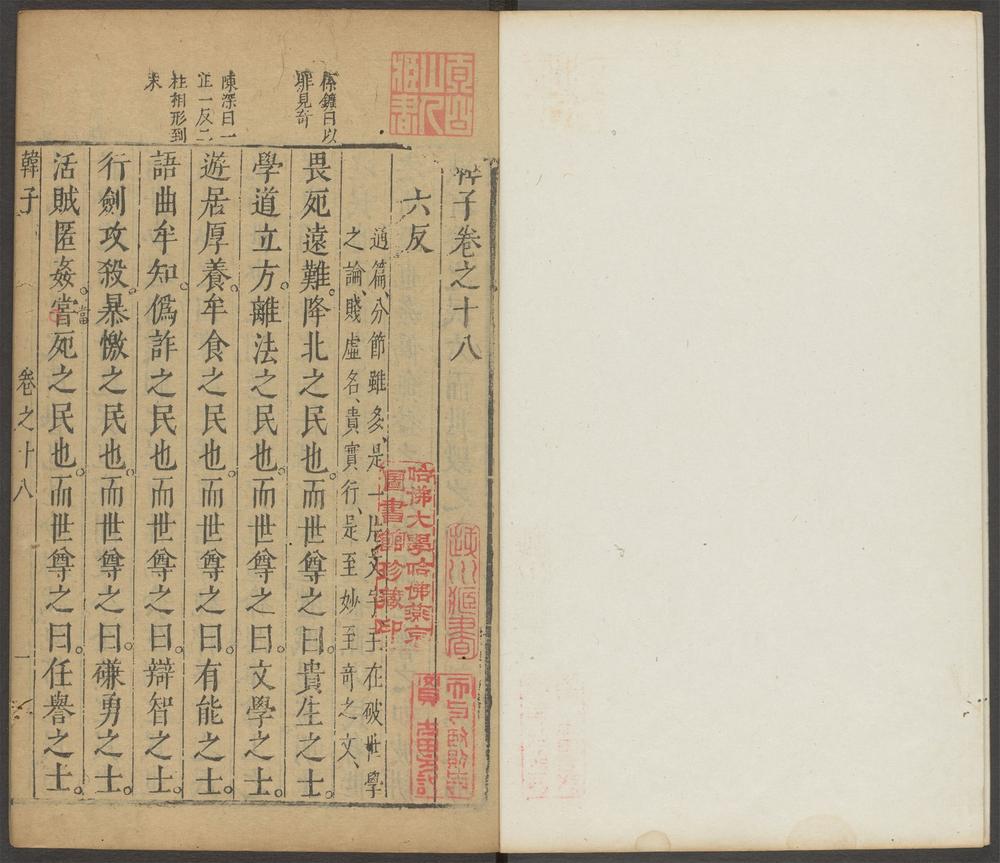 韓子卷之十八
六反
通篇、分節雖多、是一片文字主在破世學
之論、賤虛名、貴實行、是至妙至奇之文、
畏死遠難。降北之民也。而世尊之曰。貴生之士。
學道立方。離法之民也。而世尊之曰。文學之士。
遊居厚養。牟食之民也。而世尊之曰。有能之士。
語曲牟知。偽詐之民也。而世尊之曰。辯智之士。
行劍攻殺。暴憿之民也。而世尊之曰。磏勇之士。
活賊匿姦。當死之民也。而世尊之曰。任譽之士。
當
孫鑛曰以
罪見奇
陳深曰一
正一反二
柱相形到
末
韓子
卷之十八
一
哈佛大學哈佛燕京
圖書館珍藏印